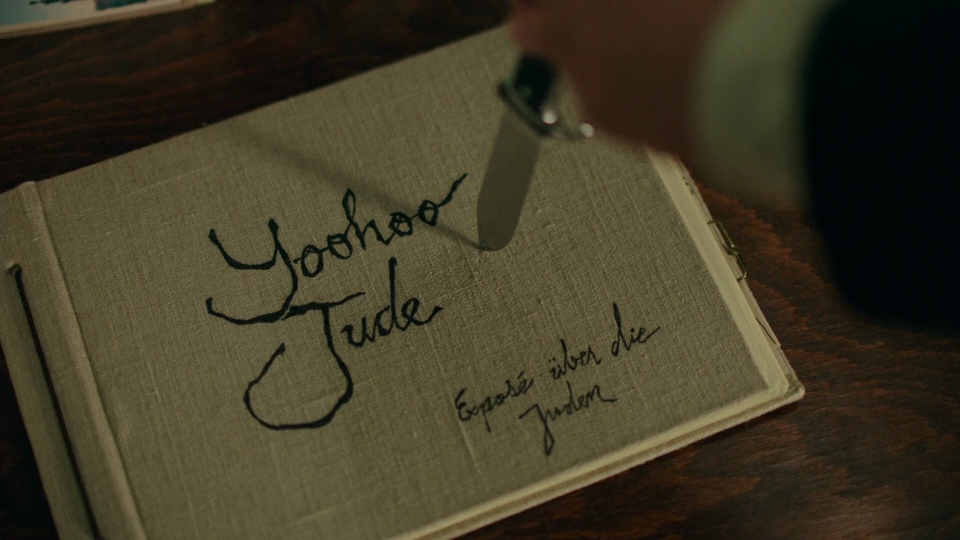 Yoohoo
Jude
Exposé über die
Juden